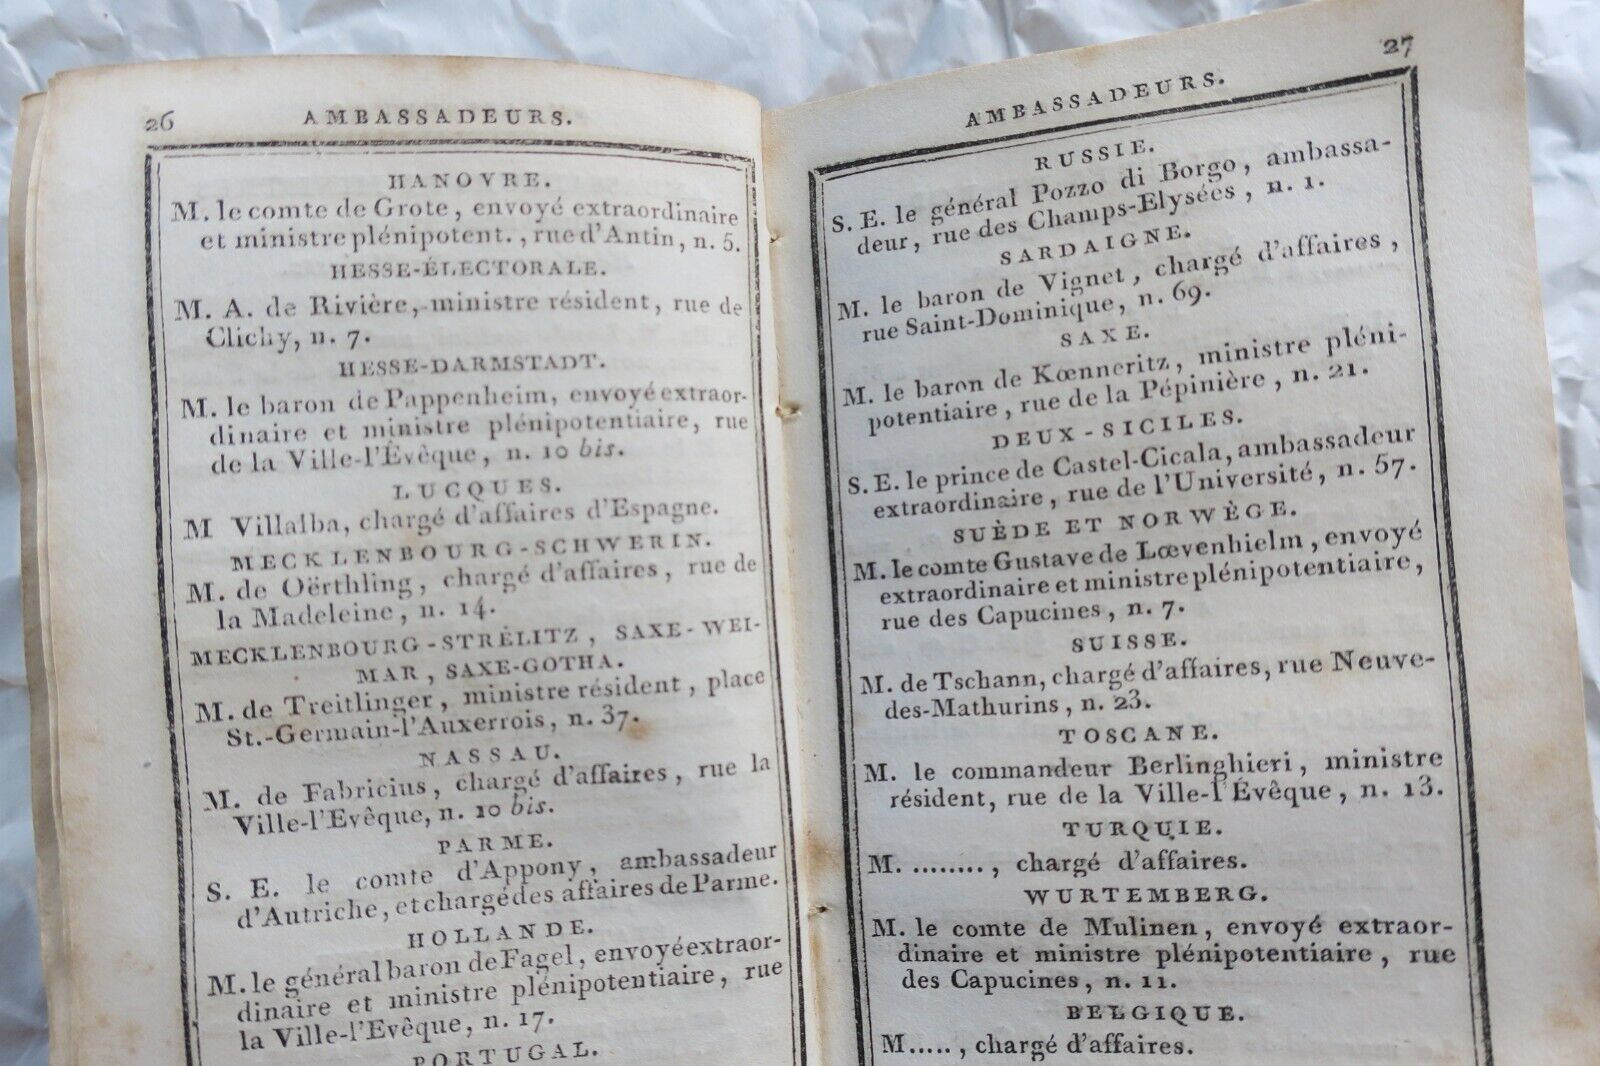 26
AMBASSADEURS.
HANOVRE.
M. le comte de Grote, envoyé extraordinaire
et ministre plénipotent., rue d'Antin, n. 5.
HESSE-ÉLECTORALE.
M. A. de Rivière, ministre résident, rue de
Clichy, n. 7.
HESSE-DARMSTADT.
M. le baron de Pappenheim, envoyé extraor-
dinaire et ministre plénipotentiaire, rue
de la Ville-l'Évêque, n. 10 bis.
LUCQUES.
M Villalba, chargé d'affaires d'Espagne.
MECKLENBOURG-SCHWERIN.
M. de Oërthling, chargé d'affaires, rue de
la Madeleine, n. 14.
MECKLENBOURG-STRÉLITZ, SAXE-WEI-
MAR, SAXE-GOTHA.
M. de Treitlinger, ministre résident, place
St.-Germain-l'Auxerrois, n. 37.
NASSAU.
M. de Fabricius, chargé d'affaires, rue la
Ville-l'Evêque, n. 10 bis.
PARME.
S. E. le comte d'Appony, ambassadeur
d'Autriche, et chargé des affaires de Parme.
HOLLANDE.
M. le général baron de Fagel, envoyé extraor-
dinaire et ministre plénipotentiaire, rue
la Ville-l'Evêque, n. 17.
PORTUGAL.
27
AMBASSADEURS.
RUSSIE.
S. E. le général Pozzo di Borgo, ambassa-
deur, rue des Champs-Elysées, n. 1.
SARDAIGNE.
M. le baron de Vignet, chargé d'affaires,
rue Saint-Dominique, n. 69.
SAXE.
M. le baron de Kœnneritz, ministre pléni-
potentiaire, rue de la Pépinière, n. 21.
DEUX-SICILES.
S. E. le prince de Castel-Cicala, ambassadeur
extraordinaire, rue de l'Université, n. 57.
SUÈDE ET NORWÈGE.
M. le comte Gustave de Lœvenhielm, envoyé
extraordinaire et ministre plénipotentiaire,
rue des Capucines, n. 7.
SUISSE.
M. de Tschann, chargé d'affaires, rue Neuve-
des-Mathurins, n. 23.
TOSCANE.
M. le commandeur Berlinghieri, ministre
résident, rue de la Ville-l'Évêque, n. 13.
TURQUIE.
M. ........, chargé d'affaires.
WURTEMBERG.
M. le comte de Mulinen, envoyé extraor-
dinaire et ministre plénipotentiaire, rue
des Capucines, n. 11.
BELGIQUE.
M....., chargé d'affaires.